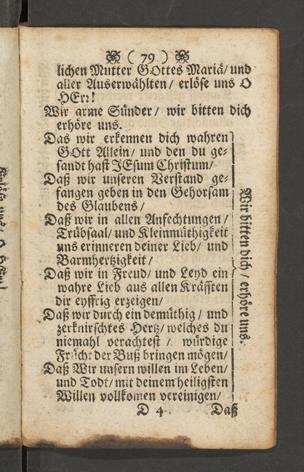 ( 79 )
lichen Mutter GOttes Mariä/ und
aller Auserwählten/ erlöse uns O
HErr!
Wir arme Sünder/ wir bitten dich
erhöre uns.
Das wir erkennen dich wahren
GOtt Allein/ und den du ge-
sandt hast JEsum Christum/
Daß wir unseren Verstand ge-
fangen geben in den Gehorsam
des Glaubens/
Daß wir in allen Anfechtungen/
Trübsaal/ und Kleinmüthigkeit
uns erinneren deiner Lieb/ und
Barmhertzigkeit/
Daß wir in Freud/ und Leyd ein
wahre Lieb aus allen Kräfften
dir eyffrig erzeigen/
Daß wir durch ein demüthig/ und
zerknirschtes Hertz/ welches du
niemahl verachtest/ würdige
Frücht der Buß bringen mögen/
Daß Wir unsern willen im Leben/
und Todt/ mit deinem heiligsten
Willen vollkomen vereinigen/
Wir bitten dich/ erhöre uns.
D 4 Daß